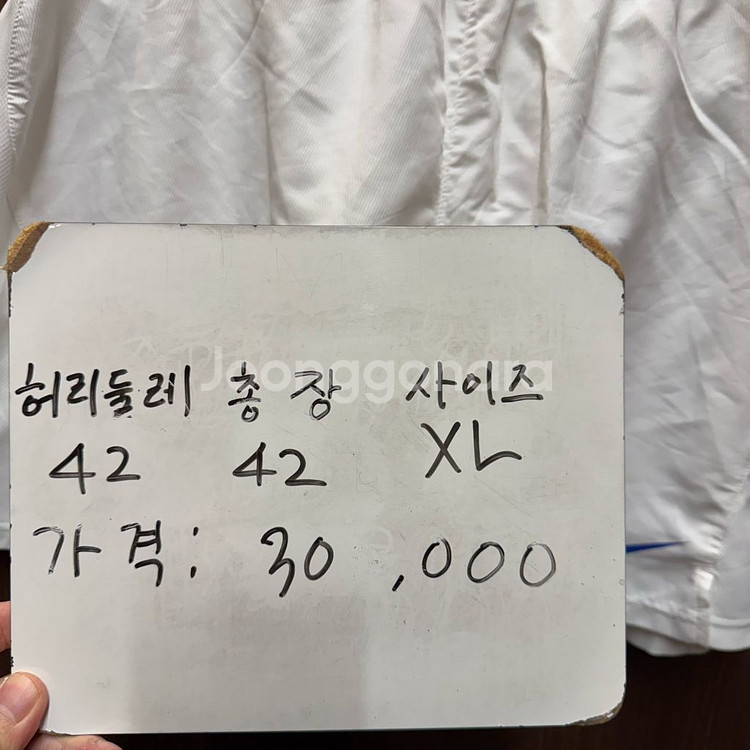 허리둘레 총장 사이즈
42 42 XL
가격: 30,000
Joonggonara